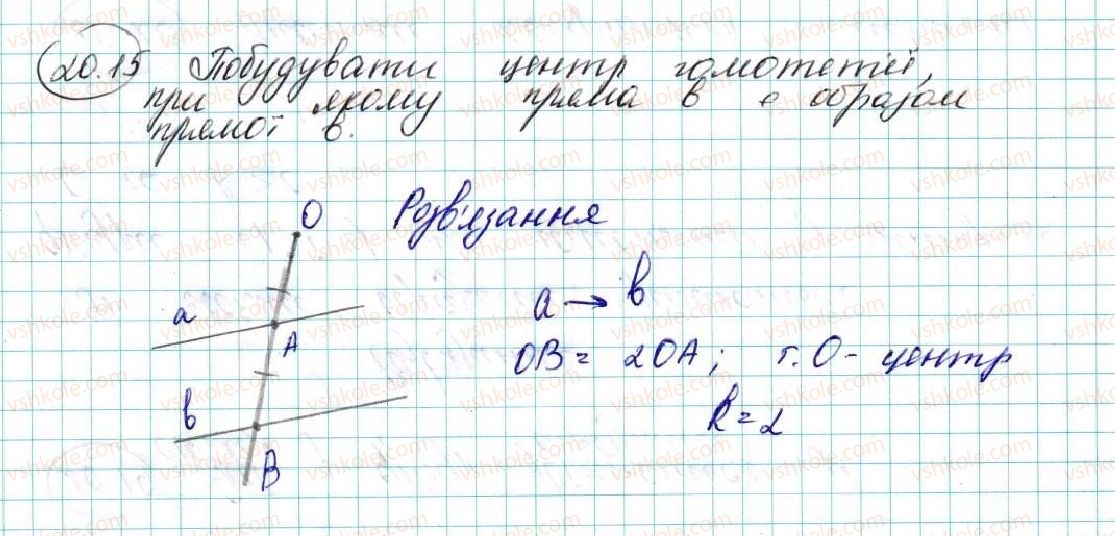 20.15 Побудувати центр гомотетії,
при якому пряма в є образом
прямої в.
Розв'язання
O
a
A
в
B
a → в
OB = 2OA; т. O - центр
k = 2